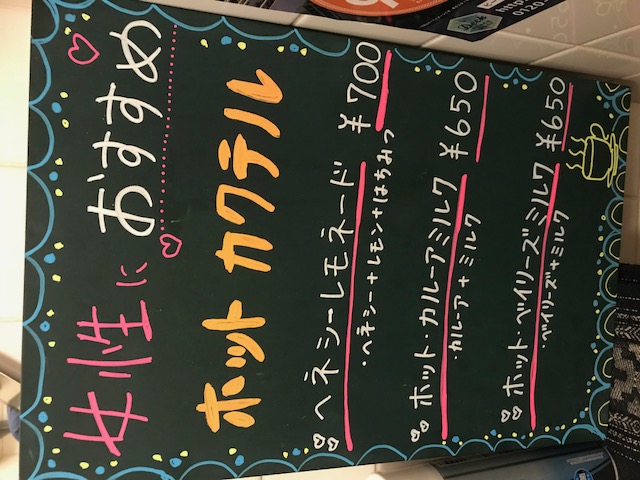 女性に おすすめ
ホット カクテル
ヘネシーレモネード ¥700
・ヘネシー+レモン+はちみつ
ホット・カルーアミルク ¥650
・カルーア+ミルク
ホット・ベイリーズミルク ¥650
・ベイリーズ+ミルク
0120